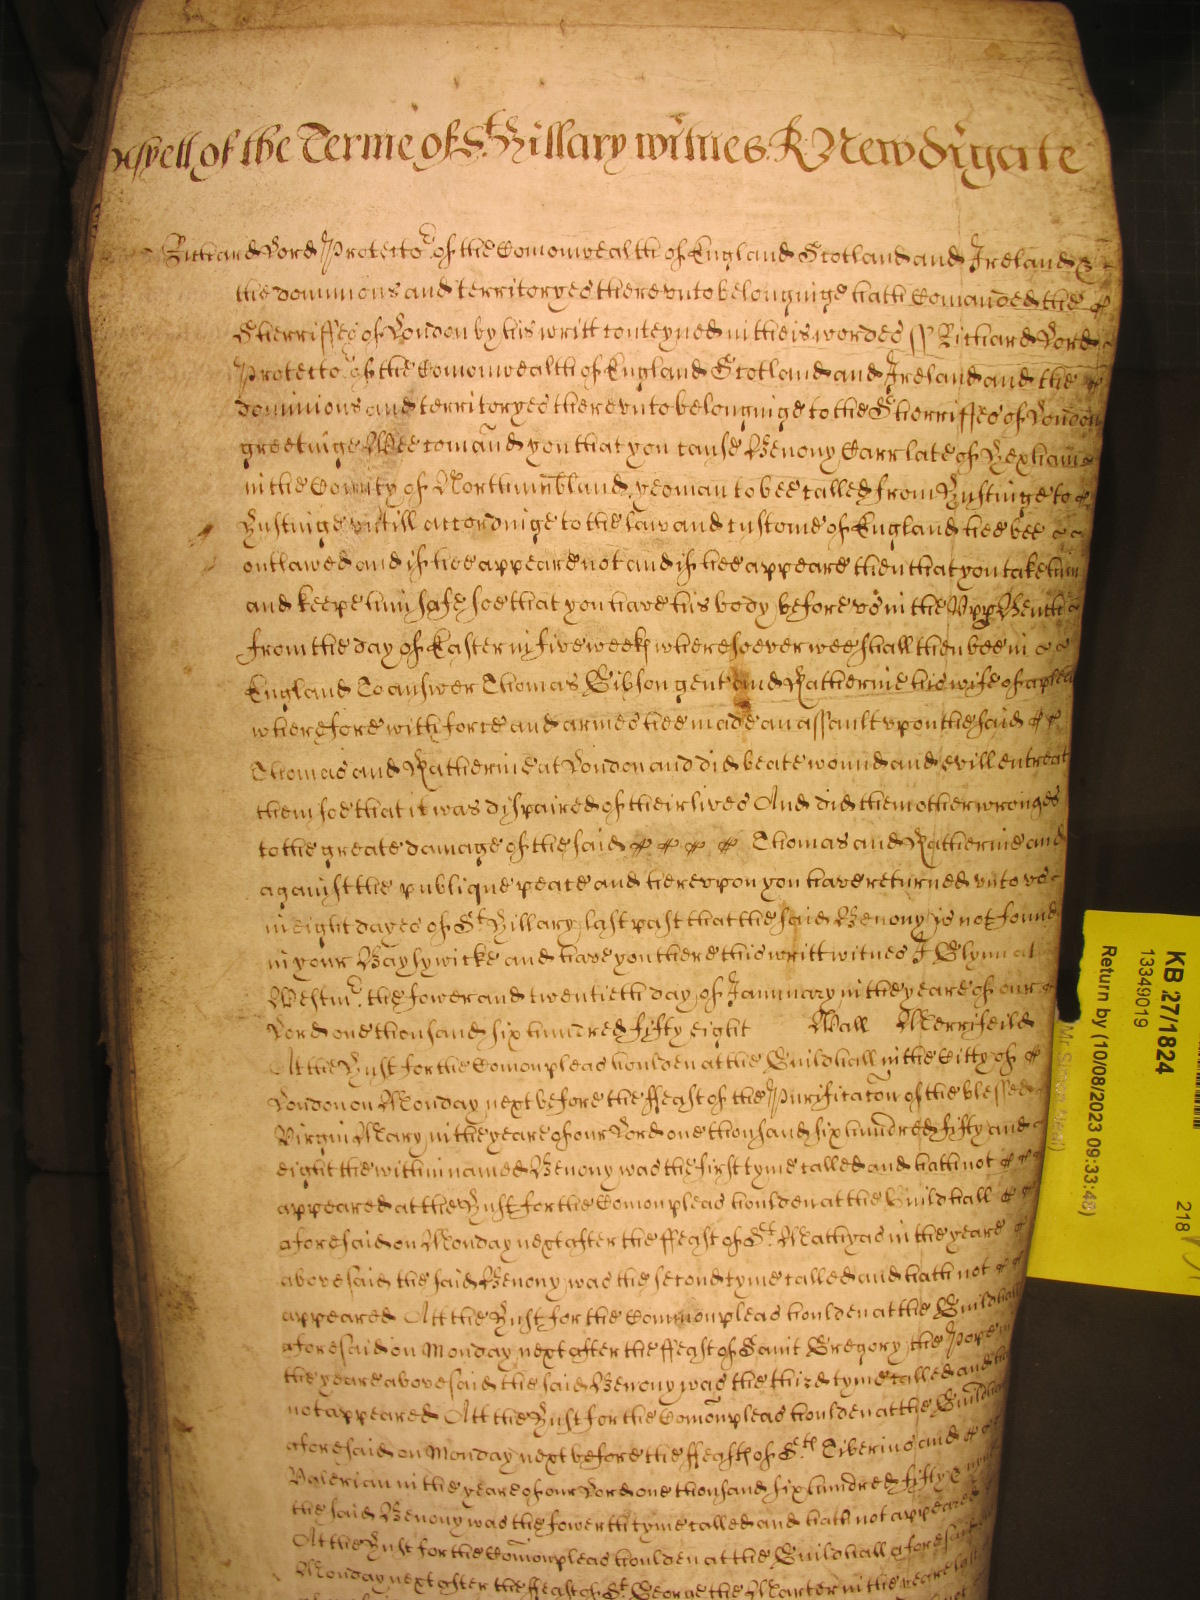 of the Terme of St. Hillary witnes R Newdigate
Richard Lord Protector of the Comonwealth of England Scotland and Ireland &
the dominions and territoryes thereunto belonginge hath Comanded the
Sherriffes of London by his writt conteyned in theis wordes ss Richard Lord
Protector of the Comonwealth of England Scotland and Ireland and the
dominions and territoryes thereunto belonginge to the Sherriffes of London
greetinge Wee comand you that you cause Benony Carr late of Hexham
in the County of Northumbland yeoman to bee called from Husting to
Hustinge untill accordinge to the law and custome of England hee bee
outlawed and if hee appeare not and if hee appeare then that you take him
and keepe him safe, soe that you have his body before us in the Upp Bench
from the day of Easter in five weeks wheresoever wee shall then bee in
England To answer Thomas Gibson gent and Katherine his wife of a plea
wherefore with force and armes hee made an assault upon the said
Thomas and Katherine at London and did beate wound and evill entreat
them soe that it was dispaired of their lives And did them other wronges
to the greate damage of the said Thomas and Katherine and
against the publique peace and hereupon you have returned unto us
in eight dayes of St. Hillary last past that the said Benony is not found
in your Baylywicke and have you there this writt witnes J Glynn at
Westmr. the fower and twentieth day of January in the yeare of our
Lord one thousand six hundred fifty eight Wall Merrifeild
At the Hust for the Comon pleas houlden at the Guildhall in the Citty of
London on Monday next before the ffeast of the Purificacon of the blessed
Virgin Mary in the yeare of our Lord one thousand six hundred fifty and
eight the within named Benony was the first tyme called and hath not
appeared at the Hust for the Comon pleas houlden at the Guildhall
aforesaid on Monday next after the ffeast of St. Mathyas in the yeare
abovesaid the said Benony was the second tyme called and hath not
appeared Att the Hust for the Common pleas houlden at the Guildhall
aforesaid on Monday next after the ffeast of Saint Gregory the Pope in
the yeare abovesaid the said Benony was the third tyme called and
not appeared Att the Hust for the Comon pleas houlden at the Guildhall
aforesaid on Monday next before the ffeast of Sts. Tiberius and
Valerian in the yeare of our Lord one thousand six hundred fifty &
the said Benony was the fowerth tyme called and hath not appeared
At the Hust for the Comon pleas houlden at the Guildhall aforesaid
Monday next after the ffeast of St. George the Marter in the yeare last
KB 27/1824
13349019
Return by (10/08/2023 09:33:48)
218